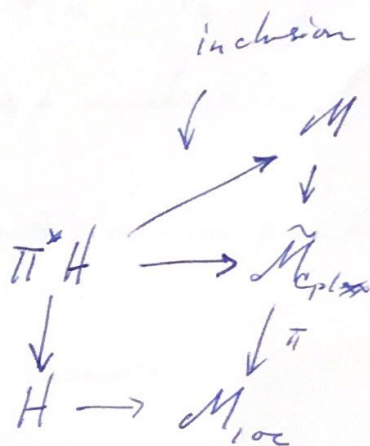 inclusion
M
π* H → M̃_cplx
π
H → M_loc